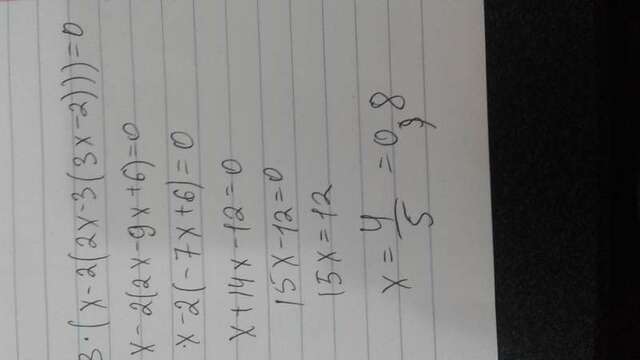 3·(x-2(2x-3(3x-2)))=0
x-2(2x-9x+6)=0
x-2(-7x+6)=0
x+14x-12=0
15x-12=0
15x=12
x=4/5=0,8